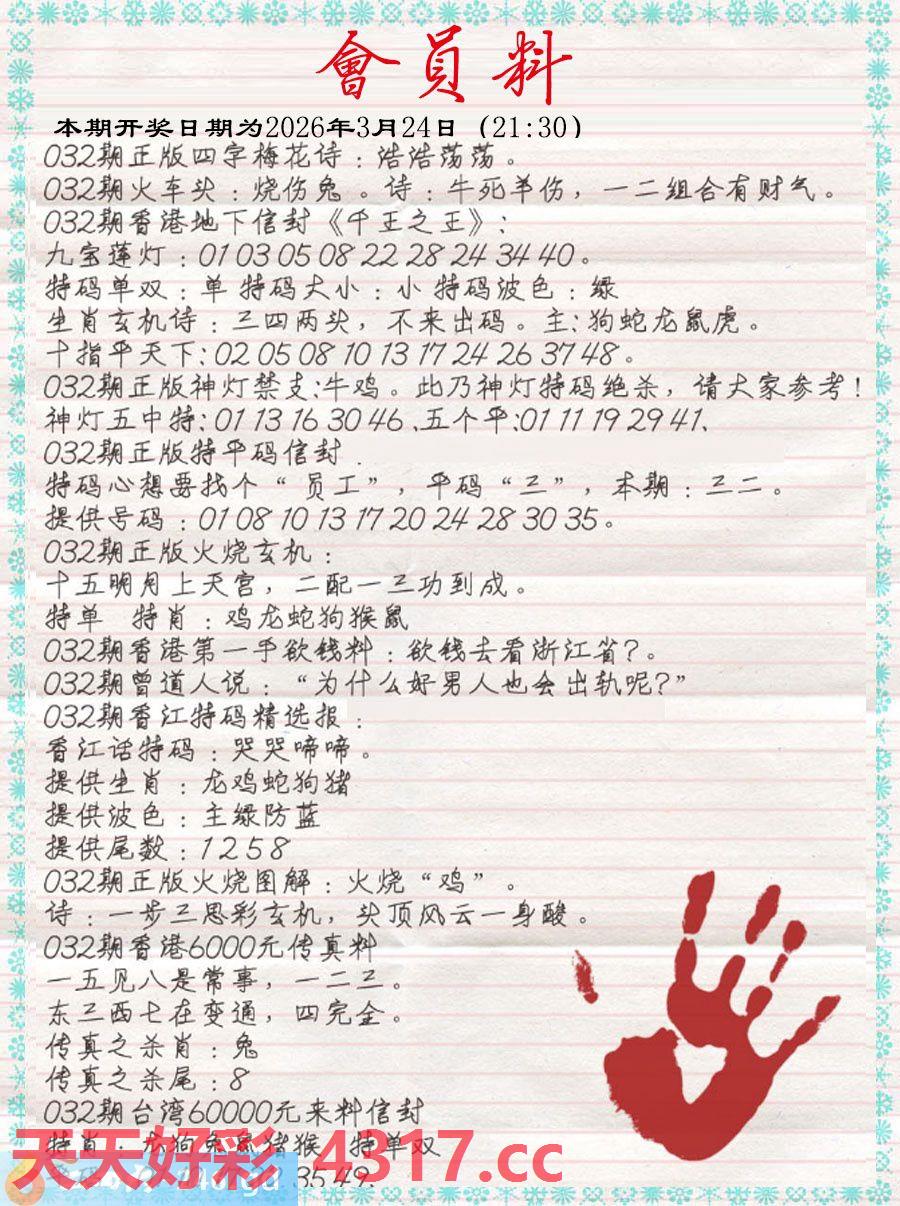 會員料
本期开奖日期为2026年3月24日（21:30）
032期正版四字梅花诗：浩浩荡荡。
032期火车头：烧伤兔 。诗：牛死羊伤，一二组合有财气。
032期香港地下信封《千王之王》:
九宝莲灯：01 03 05 08 22 28 24 34 40。
特码单双：单 特码大小：小 特码波色：绿
生肖玄机诗：三四两头，不来出码。主:狗蛇龙鼠虎。
十指平天下:02 05 08 10 13 17 24 26 37 48。
032期正版神灯禁支:牛鸡。此乃神灯特码绝杀，请大家参考！
神灯五中特:01 13 16 30 46 .五个平:01 11 19 29 41.
032期正版特平码信封 .
特码心想要找个“员工”，平码“三”，本期：三二。
提供号码：01 08 10 13 17 20 24 28 30 35。
032期正版火烧玄机：
十五明月上天宫，二配一三功到成。
特单 特肖：鸡龙蛇狗猴鼠
032期香港第一手欲钱料：欲钱去看浙江省?。
032期曾道人说：“为什么好男人也会出轨呢?”
032期香江特码精选报：
香江话特码：哭哭啼啼。
提供生肖：龙鸡蛇狗猪
提供波色：主绿防蓝
提供尾数：1 2 5 8
032期正版火烧图解：火烧“鸡”。
诗：一步三思彩玄机，头顶风云一身酸。
032期香港6000元传真料
一五见八是常事，一二三。
东三西七在变通，四完金。
传真之杀肖：兔
传真之杀尾：8
032期台湾60000元来料信封
特肖：龙狗兔鼠猪猴 特单双
天天好彩 4317.cc
35 49.